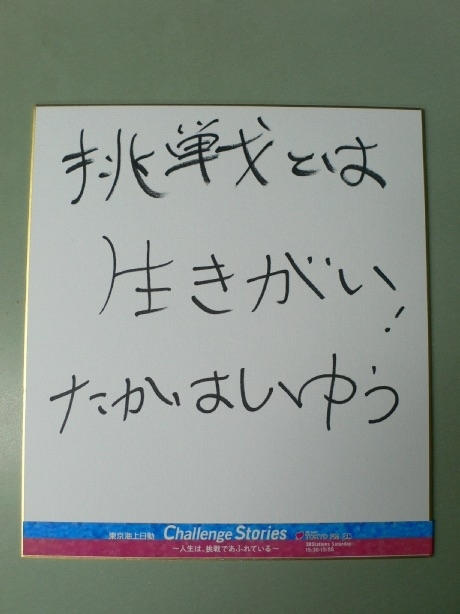 挑戦とは
生きがい!
たかはしゆう
東京海上日動 Challenge Stories
～人生は、挑戦であふれている～
TOKYO FM
38Stations Saturday
15:30-15:55